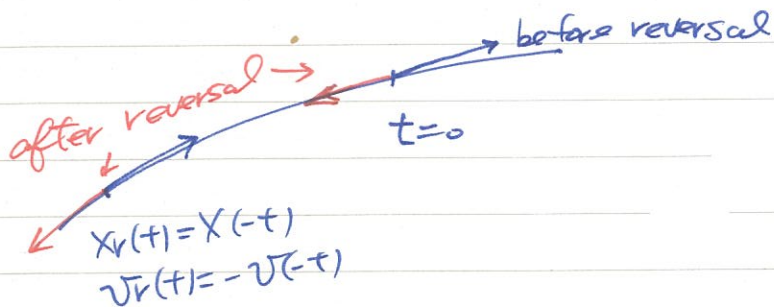 before reversal
after reversal →
t=0
xr(t)=x(-t)
vr(t)=-v(-t)